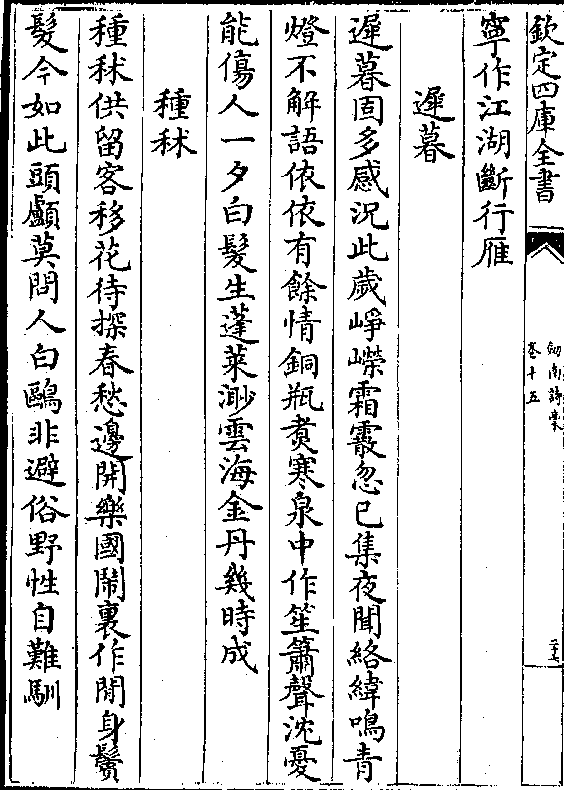 欽定四庫全書
劍南詩槀
卷十五
二十七
寧作江湖斷行雁
遲暮
遲暮固多感況此歲崢嶸霜霰忽已集夜聞絡緯鳴青
燈不解語依依有餘情銅瓶煑寒泉中作笙簫聲沈憂
能傷人一夕白髮生蓬萊渺雲海金丹幾時成
種秫
種秫供留客移花待探春愁邊開樂國鬧裏作閒身鬢
髮今如此頭顱莫問人白鷗非避俗野性自難馴